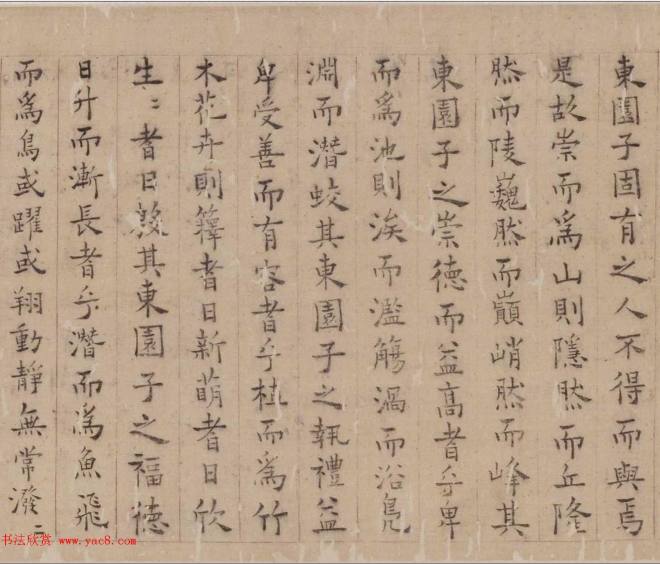 東園子固有之人不得而與焉
是故崇而爲山則隱然而丘隆
然而陵巍然而巔峭然而峰其
東園子之崇德而益高者乎卑
而爲池則涘而濫觴渦而浴鳧
淵而潛蛟其東園子之執禮益
卑受善而有容者乎植而爲竹
木花卉則籜者日新萌者日欣
生〻者日其東園子之福德
日升而漸長者乎潛而爲魚飛
而爲鳥或躍或翔動靜無常潑〻
书法欣赏 www.yac8.com